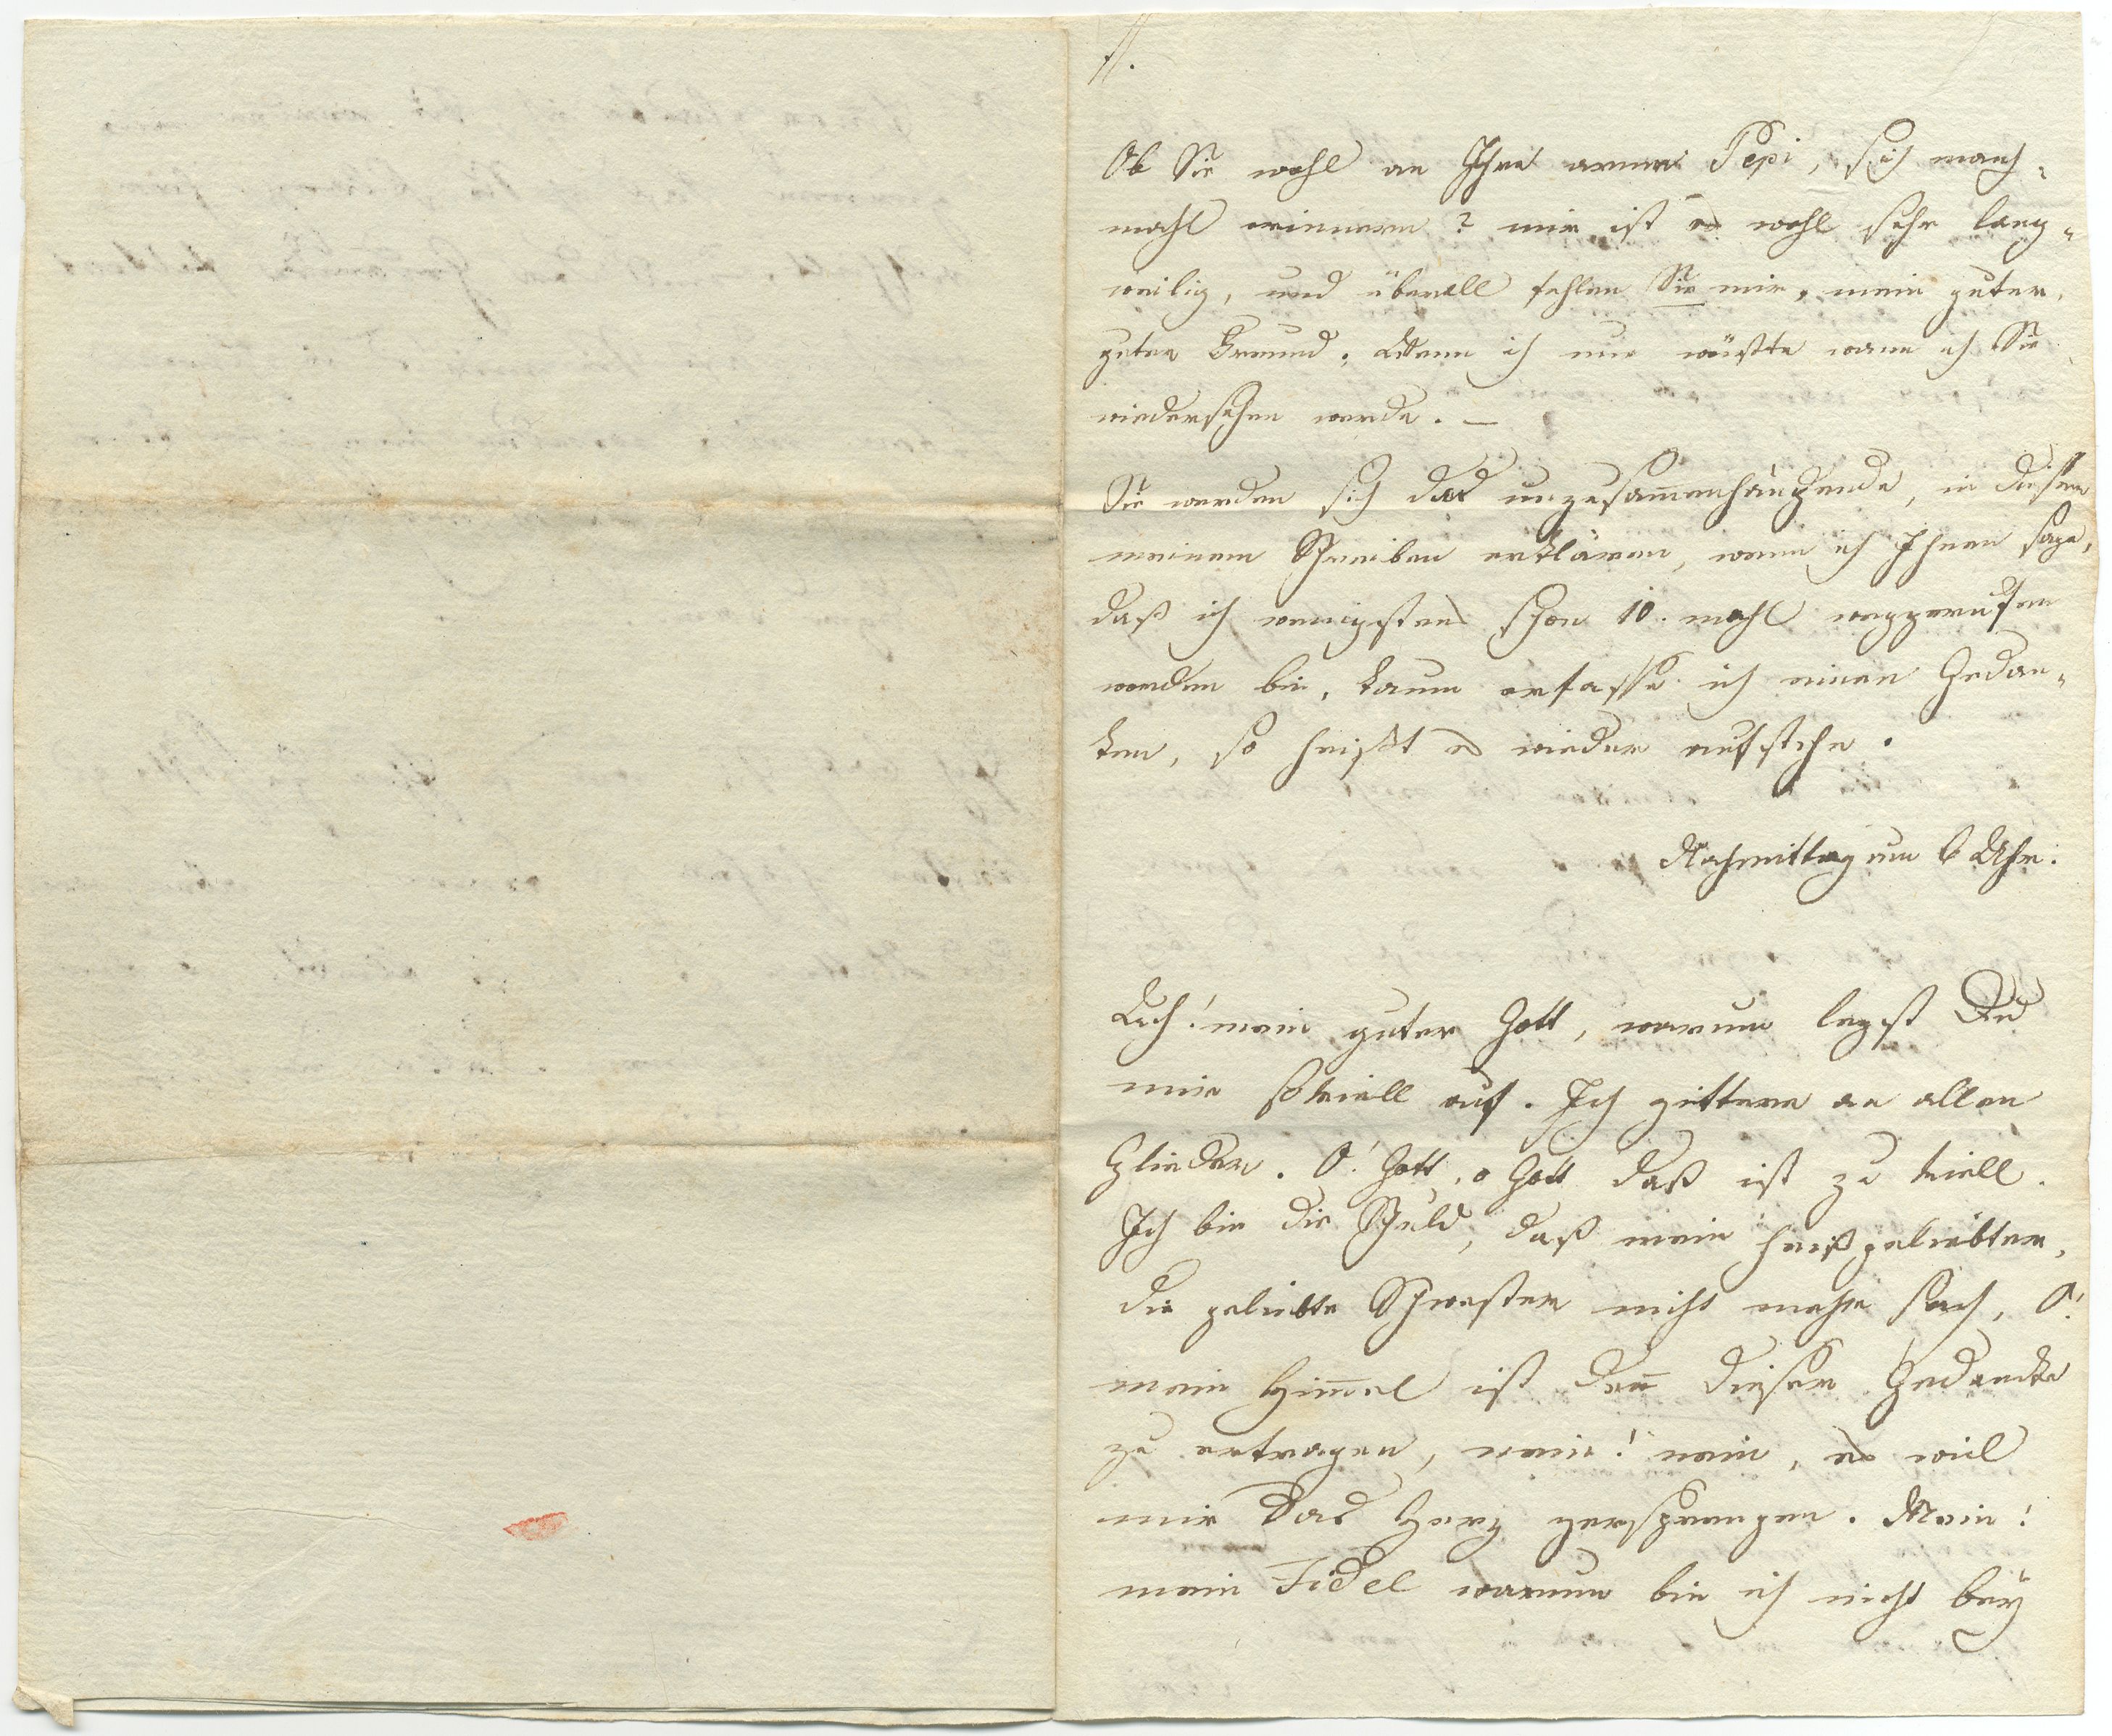 Ob Sie wohl an Ihre arme Pepi, sich manch¬
mahl erinnern? mir ist es wohl sehr lang¬
weilig, und überall fehlen Sie mir, mein guter,
guter Freund. Wenn ich nur wüßte wann ich Sie
wiedersehen werde. —
Sie werden sich das unzusam̅enhängende, in diesem
meinem Schreiben erklären, wenn ich Ihnen sage,
daß ich wenigstens schon 10. mahl weggerufen
worden bin, kaum erfasse ich einen Gedan¬
ken, so heißt es wieder aufstehe.
Nachmittag um 6 Uhr.
Ach! mein guter Gott, warum legst Du
mir so viell auf. Ich zittere an allen
Glieder. O! Gott, o Gott daß ist zu viell.
Ich bin die Schuld, daß mein heißgeliebter,
die geliebte Schwester nicht mehr sach, O!
mein Him̅el ist den̅ dieser Gedancke
zu ertragen, nein! nein, es will
mir das Herz zersprengen. Mein!
mein Fidel warum bin ich nicht bey